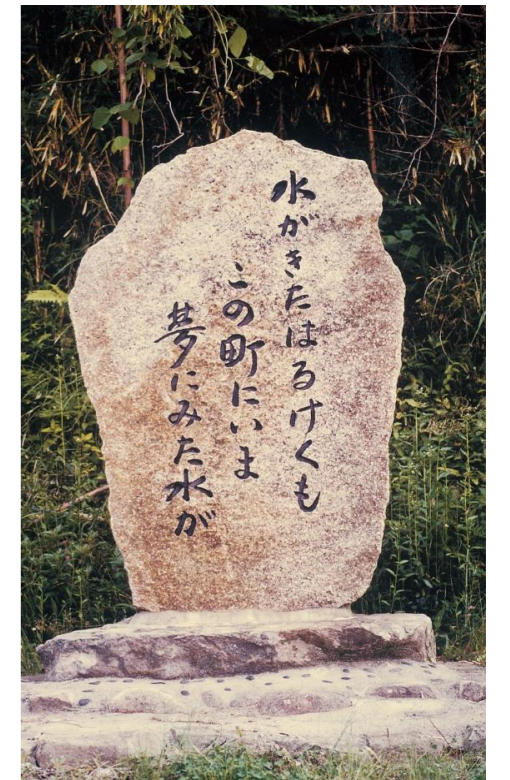 水がきたはるけくも
この町にいま
夢にみた水が